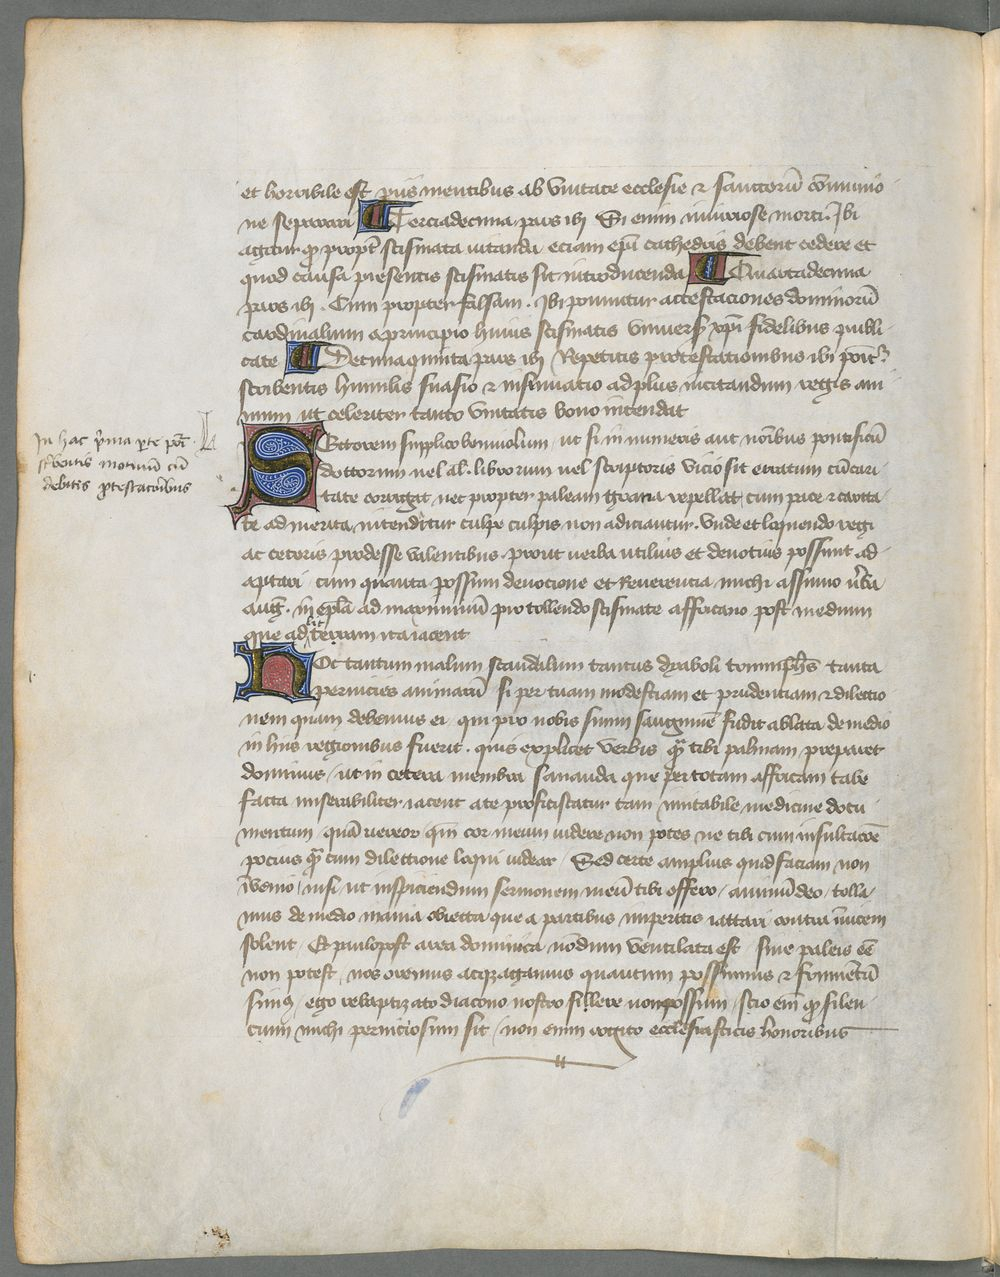 et horribile est piis mentibus ab vnitate ecclesie ⁊ sanctorū cōmunio
ne separari Terciadecima pars ibi Si enim iniuriose morti. Ibi
agitur qꝫ propt̄ scismata vitanda eciam ep̄i cathedris debent cedere et
quod causa presentis scismatis sit introducenda Quartadecima
pars ibi . Cum propter falsam . Ibi ponuntur attestaciones dominorū
cardinalium a principio huius scismatis vniuersꝭ xp̄i fidelibus publi
cate Decimaquinta pars ibi Repetitis protestationibus ibi poīt᷑
scribentis humilis suasio ⁊ insinuatio ad plus incitandum regis ani
mum ut celeriter tanto vnitatis bono intendat
In hac p̄ma p̄te poīt᷑
sc̄bentis motiuū cū
debitis p̄testacōibus
Lectorem supplico beniuolum . ut si in numeris aut nōibus pontificū
doctorum uel al᷑. librorum uel scriptoris vicio sit erratum cū cari
tate corrigat nec propter paleam grana repellat cum pace ⁊ carita
te ad merita intenditur culpe culpis non adiciantur . Vnde et loquendo regi
ac ceteris prodesse valentibus . prout uerba utilius et deuotius possunt ad
aptari . cum quanta possum deuocione et Reuerencia michi assumo v̄ba
aug᷑. in ep̄la ad maximinū pro tollendo scismate affricano post medium
que ad lr̄am ita iacent
Hoc tantum malum scandalum tantus dyaboli triumphꝰ tanta
pernicies animarū si per tuam modestiam et prudentiam ⁊ dilectio
nem quam debemus ei qui pro nobis suum sanguinē fudit ablata de medio
in hiis regionibus fuerit . quis explicet verbis qᷓ tibi palmam preparet
dominus . ut in cetera membra sananda que per totam affricam tabe
facta miserabiliter iacent a te proficiscatur tam imitabile medicine docu
mentum . quā uereor qm̄ cor meum uidere non potes ne tibi cum insultacōe
pocius qᷓ cum dilectione loqui videar . Sed certe amplius quid faciam non
īuenio . nisi ut inspiciendum sermonem meū tibi offero . animū deo . tolla
mus de medio inania obiecta que a partibus imperitis iactari contra īuicem
solent . Et paulo post area dominica nōdum ventilata est . sine paleis eē
non potest . nos oremus atqꝫ agamus quantum possumus ⁊ frumētū
simꝰ . ego rebaptizato diacono nostro sillere non possum . scio em̄ qꝫ silen
cium michi perniciosum sit . non enim cogito ecclesiasticis honoribus